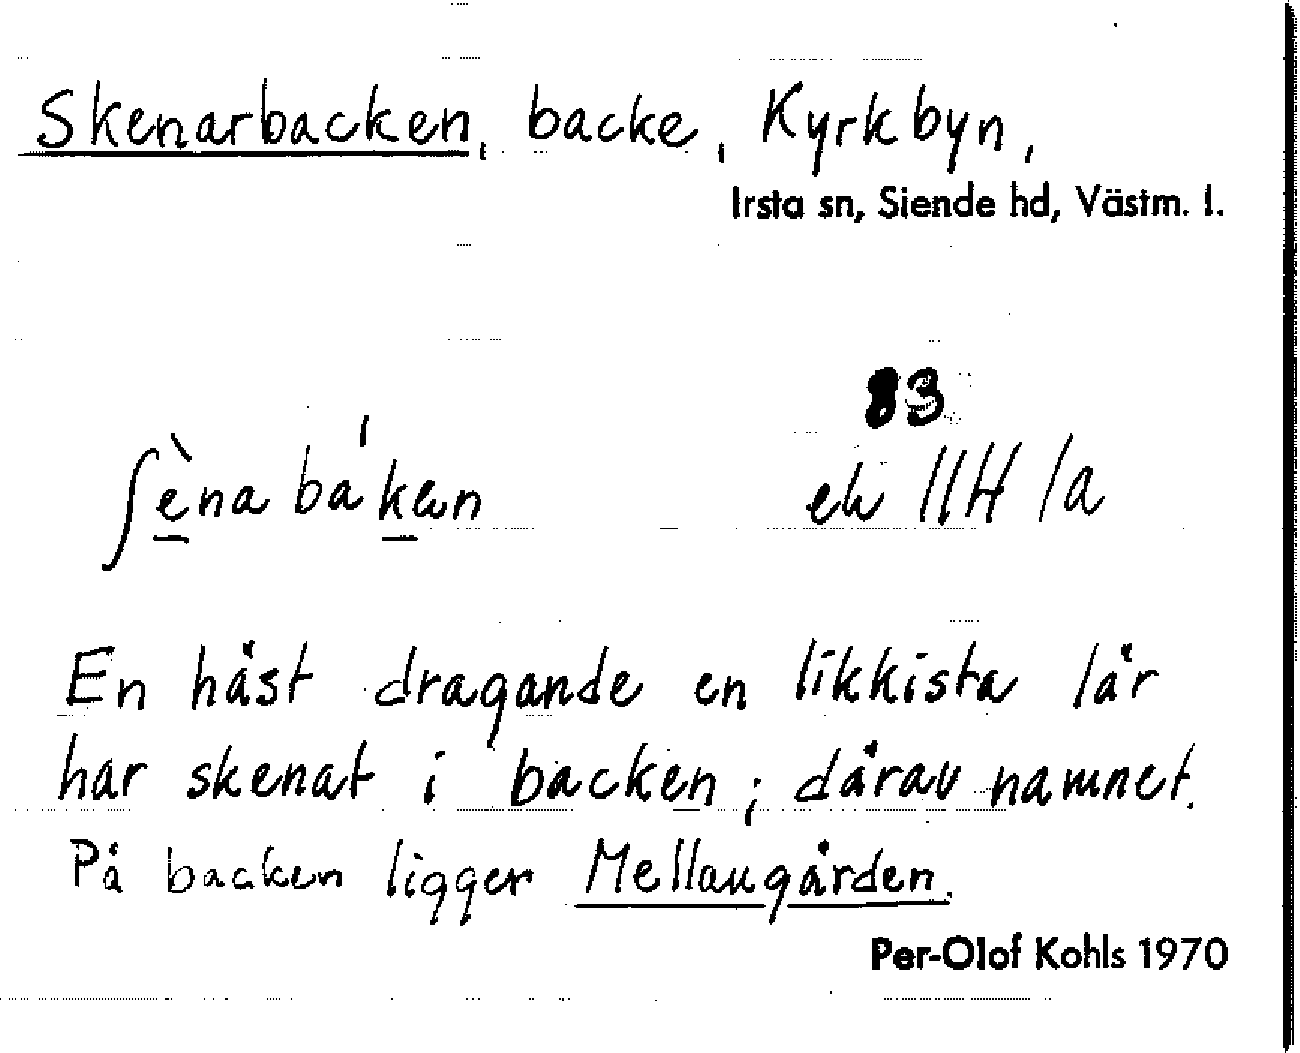 Skenarbacken, backe, Kyrkbyn,
Irsta sn, Siende hd, Västm. l.
83
ʃèna ba'ken
ek 11H 1a
En häst dragande en likkista lär
har skenat i backen; därav namnet.
På backen ligger Mellangården.
Per-Olof Kohls 1970